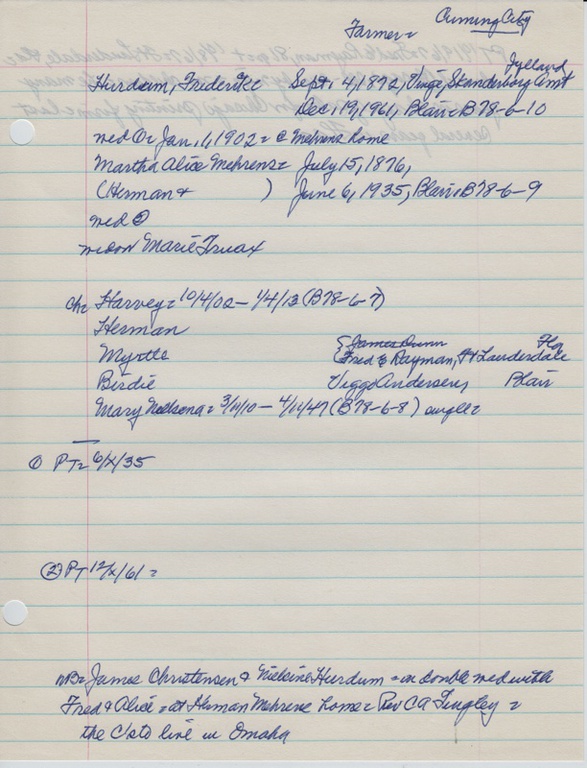 Farmer = Cuming City
Jylland
Hurdum, Frederike Sept. 4, 1872, Vinge, Skanderborg Amt
Dec. 19, 1961, Blair = B78-6-10
med ① = Jan. 1, 1902 = @ Mehrens home
Martha Alice Mehrens = July 15, 1876,
(Herman & ) June 6, 1935, Blair = B78-6-9
med ②
widow Marie Truax
ch = Harvey = 10/4/02 - 1/4/13 (B78-6-7)
Herman
James Dunn Fla
Myrtle Fred E Rayman, Ft Lauderdale
Birdie Viggo Andersen, Blair
Mary = 3/11/10 - 4/11/47 (B78-6-8) single =
① PT = 6/X/35
② PT 12/X/61 =
NB = James Christensen & Nielsine Hurdum = in double wed with
Fred & Alice = at Herman Mehrens home = Rev CA Tingley =
the C/sts live in Omaha